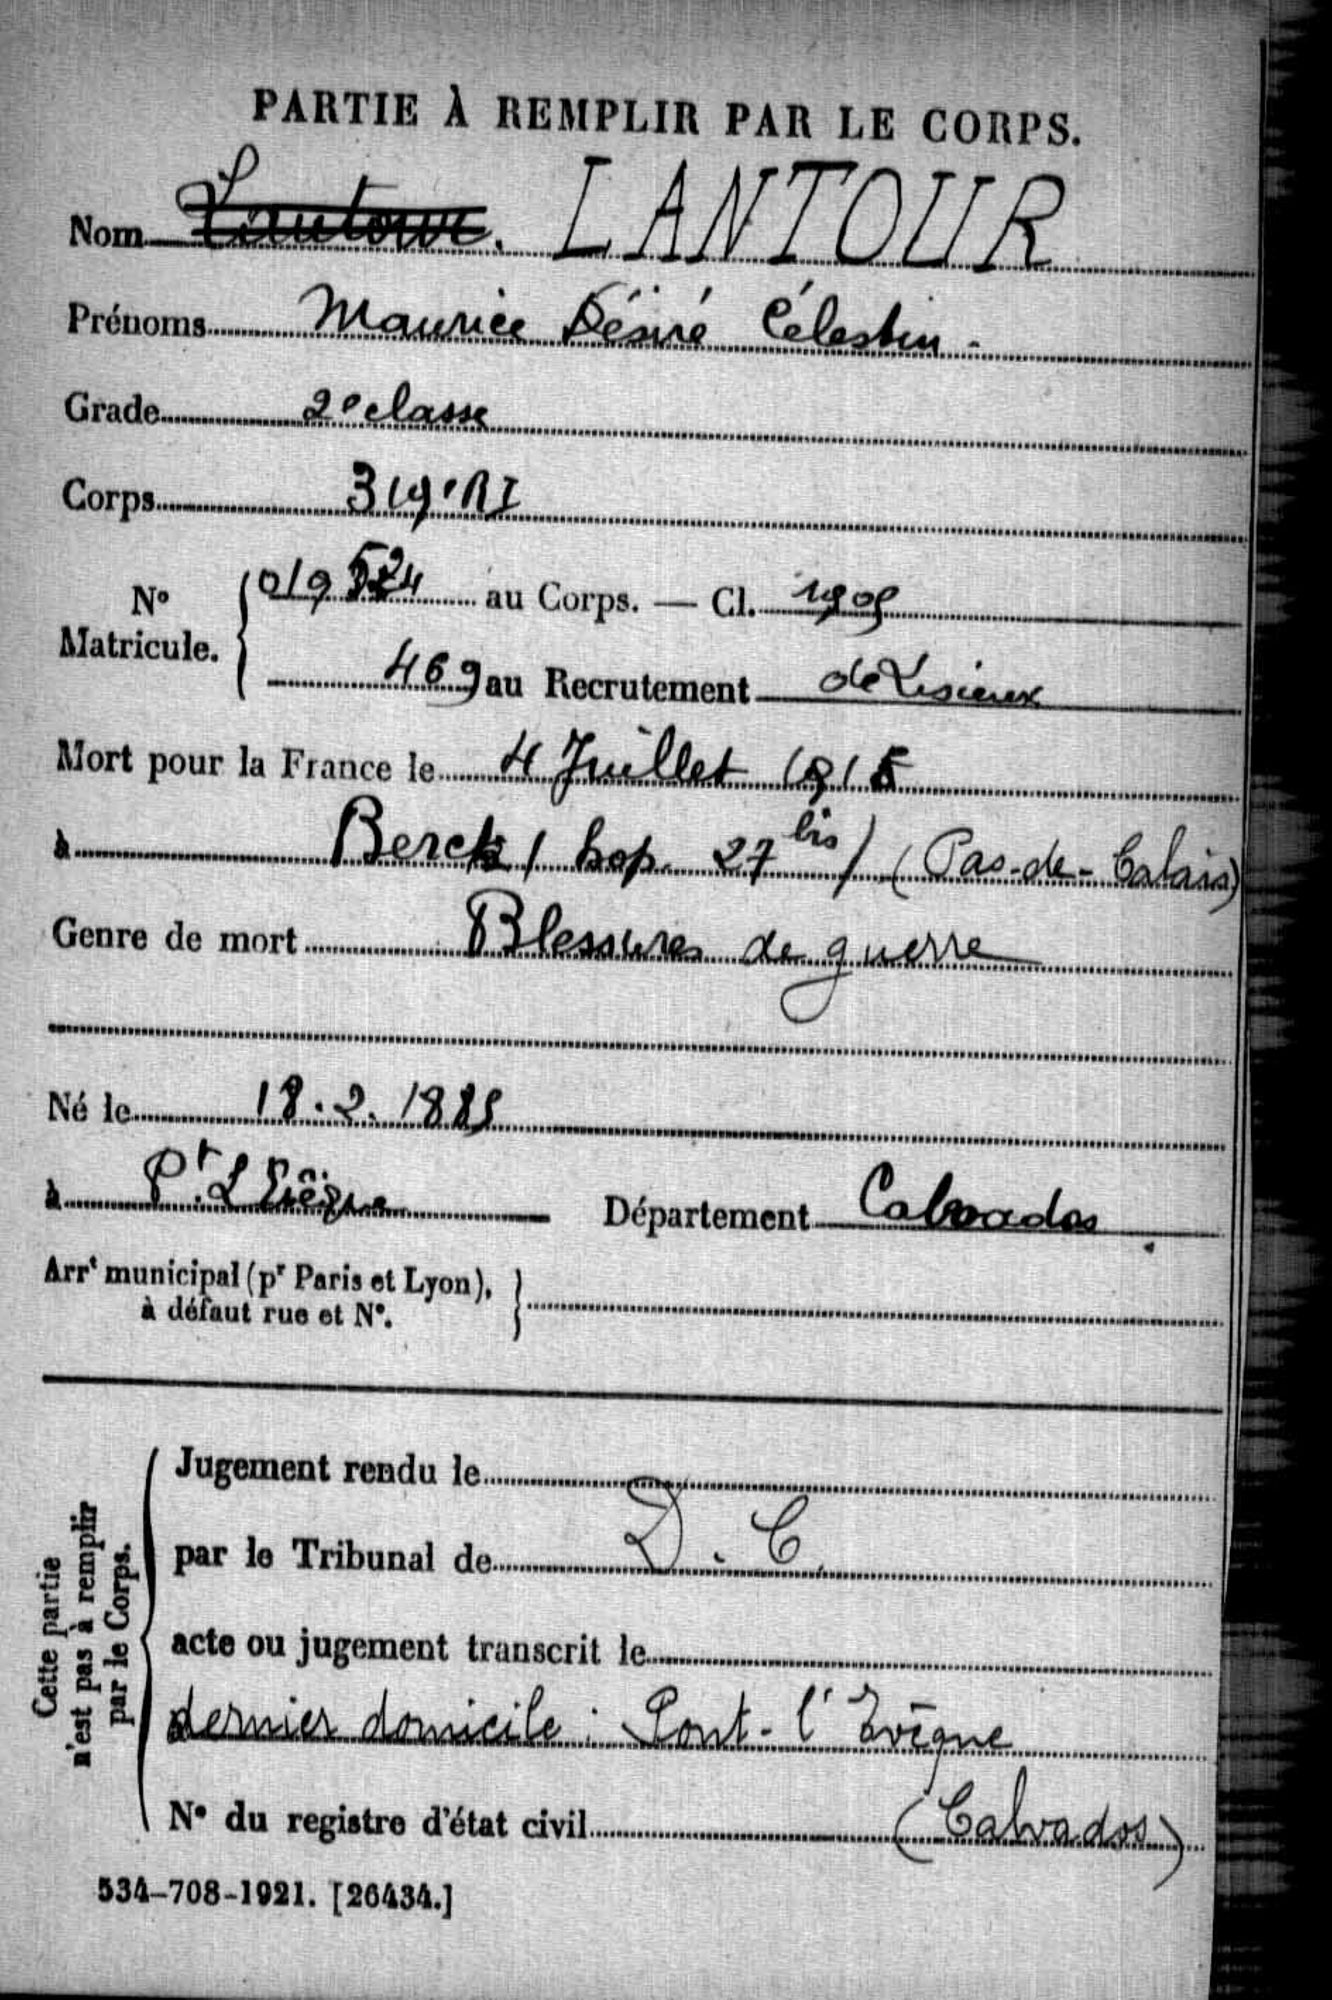 PARTIE À REMPLIR PAR LE CORPS.
Nom LANTOUR
Prénoms Maurice Désiré Célestin.
Grade 2e classe
Corps 319e RI
No Matricule. 019524 au Corps. — Cl. 1905
469 au Recrutement de Lisieux
Mort pour la France le 4 Juillet 1915
à Berck / hop. 27 bis / (Pas-de-Calais)
Genre de mort Blessures de guerre
Né le 18.2.1885
à Pt. L'Evêque Département Calvados.
Arrt municipal (pr Paris et Lyon),
à défaut rue et No.
Cette partie
n'est pas à remplir
par le Corps.
Jugement rendu le
par le Tribunal de D. C.
acte ou jugement transcrit le
dernier domicile : Pont-l'Evêque
No du registre d'état civil (Calvados)
534-708-1921. [26434.]